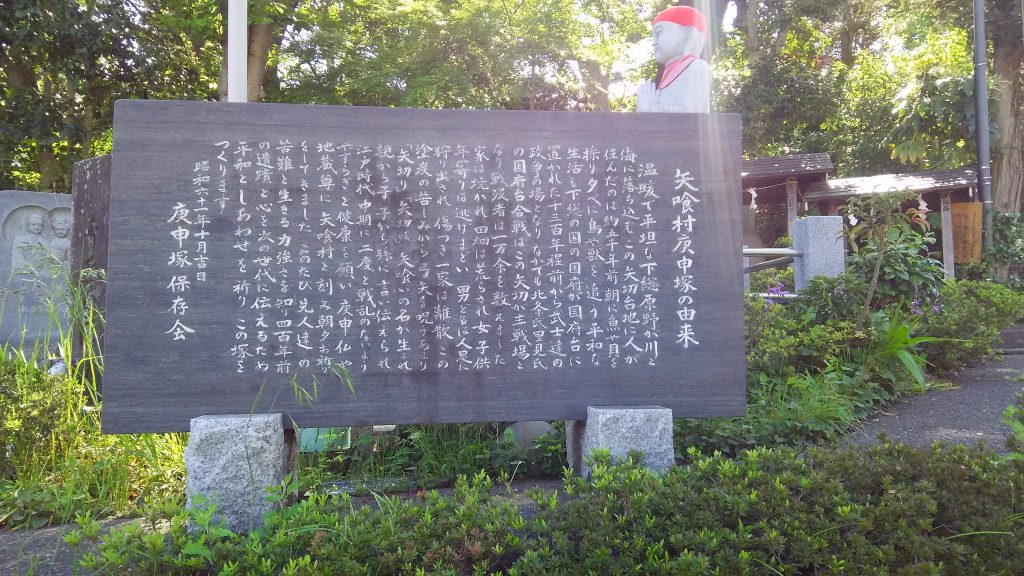 矢喰村庚申塚の由来
温暖で平坦な下総原野が川と
海に落ち込むこの矢切台地に人が
住んだのは約五千年前朝に魚や貝を
採り夕べに鳥や獣を追い平和な
生活を下総の国の国府が国府台に
置かれた千三百年程前から武士達の
政争の場となりなかでも北条氏里見氏
の国府台合戦はこの矢切が主戦場と
なり戦没者は一万余を数えました
家は焼かれ田畑は荒らされ女子供
年寄りは逃げまどい男どもは人足に
狩り出され傷つき一家は離散この
塗炭の苦しみから弓矢を呪うあまり
矢切り 矢喰いの名が生まれ
親から子 子から孫に言い伝えられ
江戸時代中期に二度と戦乱のないよう
やすらぎと健康を願い庚申仏や
地蔵尊に矢喰村と刻み朝夕お祈り
をしてきました このたび先人達の
苦難と生きる力強さを知り四百年前
の遺蹟と心を次の世代に伝えるため
平和としあわせを祈り この塚を
つくります
昭和六十一年十月吉日
庚申塚保存会